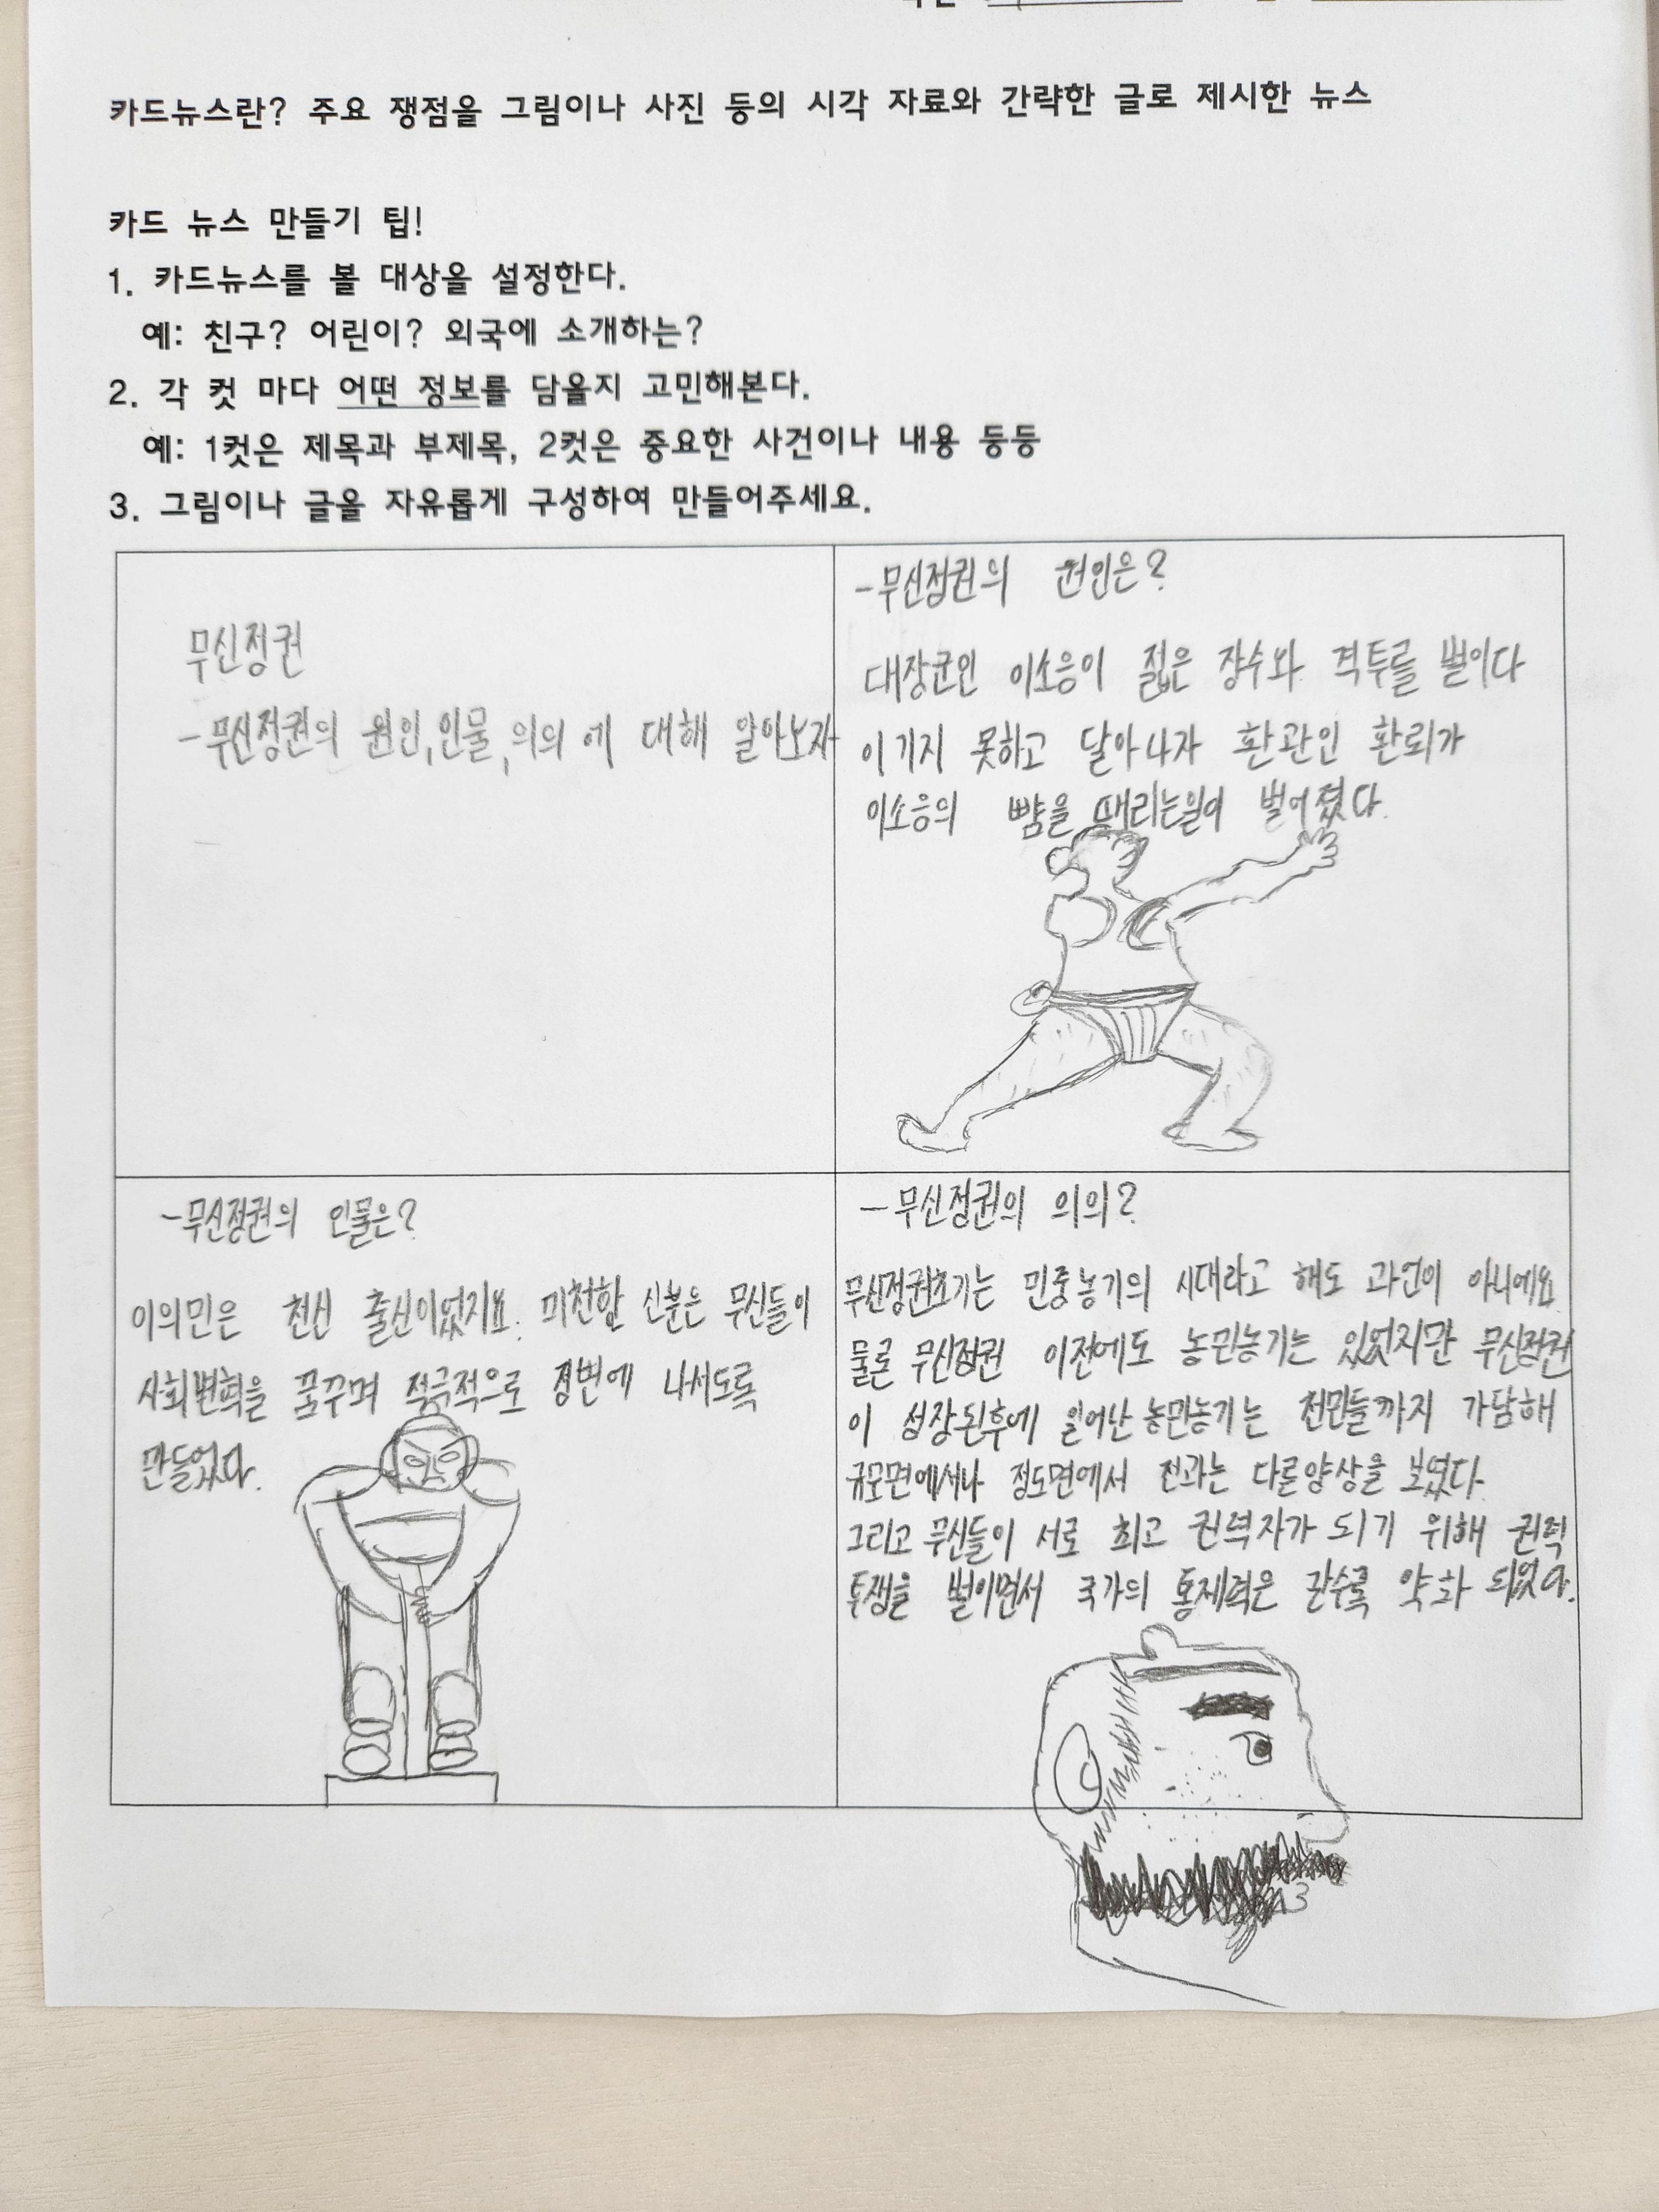 카드뉴스란? 주요 쟁점을 그림이나 사진 등의 시각 자료와 간략한 글로 제시한 뉴스
카드 뉴스 만들기 팁!
1. 카드뉴스를 볼 대상을 설정한다.
예: 친구? 어린이? 외국에 소개하는?
2. 각 컷 마다 어떤 정보를 담을지 고민해본다.
예: 1컷은 제목과 부제목, 2컷은 중요한 사건이나 내용 등등
3. 그림이나 글을 자유롭게 구성하여 만들어주세요.
무신정권
-무신정권의 원인,인물,의의 에 대해 알아보자
-무신정권의 원인은?
대장군인 이소응이 젊은 장수와 격투를 벌이다
이기지 못하고 달아나자 환관인 환뢰가
이소응의 뺨을 때리는일이 벌어졌다.
-무신정권의 인물은?
이의민은 천신 출신이었지요. 미천한 신분은 무신들이
사회변혁을 꿈꾸며 적극적으로 정변에 나서도록
만들었다.
-무신정권의 의의?
무신정권초기는 민중봉기의 시대라고 해도 과언이 아니에요
물론 무신정권 이전에도 농민봉기는 있었지만 무신정권
이 성장된후에 일어난 농민봉기는 천민들까지 가담해
규모면에서나 정도면에서 전과는 다른양상을 보였다.
그리고 무신들이 서로 최고 권력자가 되기 위해 권력
투쟁을 벌이면서 국가의 통제력은 갈수록 약화 되었다.